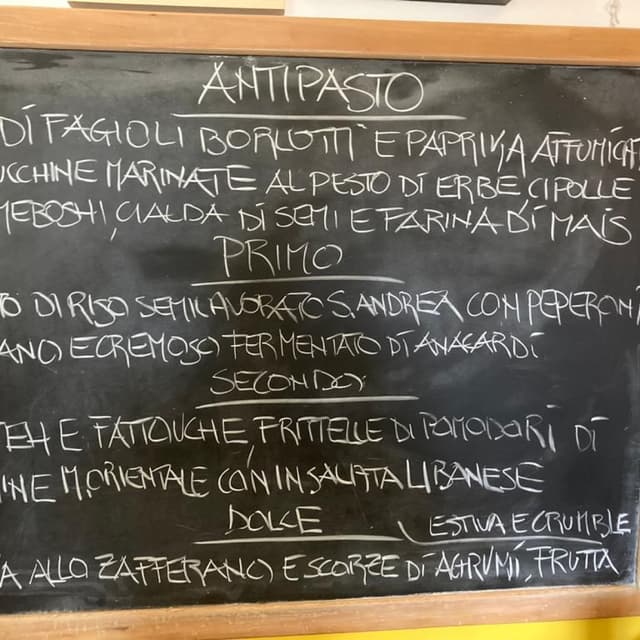 ANTIPASTO
DI FAGIOLI BORLOTTI E PAPRIKA AFFUMICAT
UCCHINE MARINATE AL PESTO DI ERBE, CIPOLLE
MEBOSHI, CIALDA DI SEMI E FARINA DI MAIS
PRIMO
TO DI RISO SEMILAVORATO S. ANDREA CON PEPERONI
ANO E CREMOSO FERMENTATO DI ANACARDI
SECONDO
TEH E FATTOUCHE, FRITTELLE DI POMODORI DI
INE M. ORIENTALE CON INSALATA LIBANESE
DOLCE
ESTIVA E CRUMBLE
A ALLO ZAFFERANO E SCORZE DI AGRUMI, FRUTTA